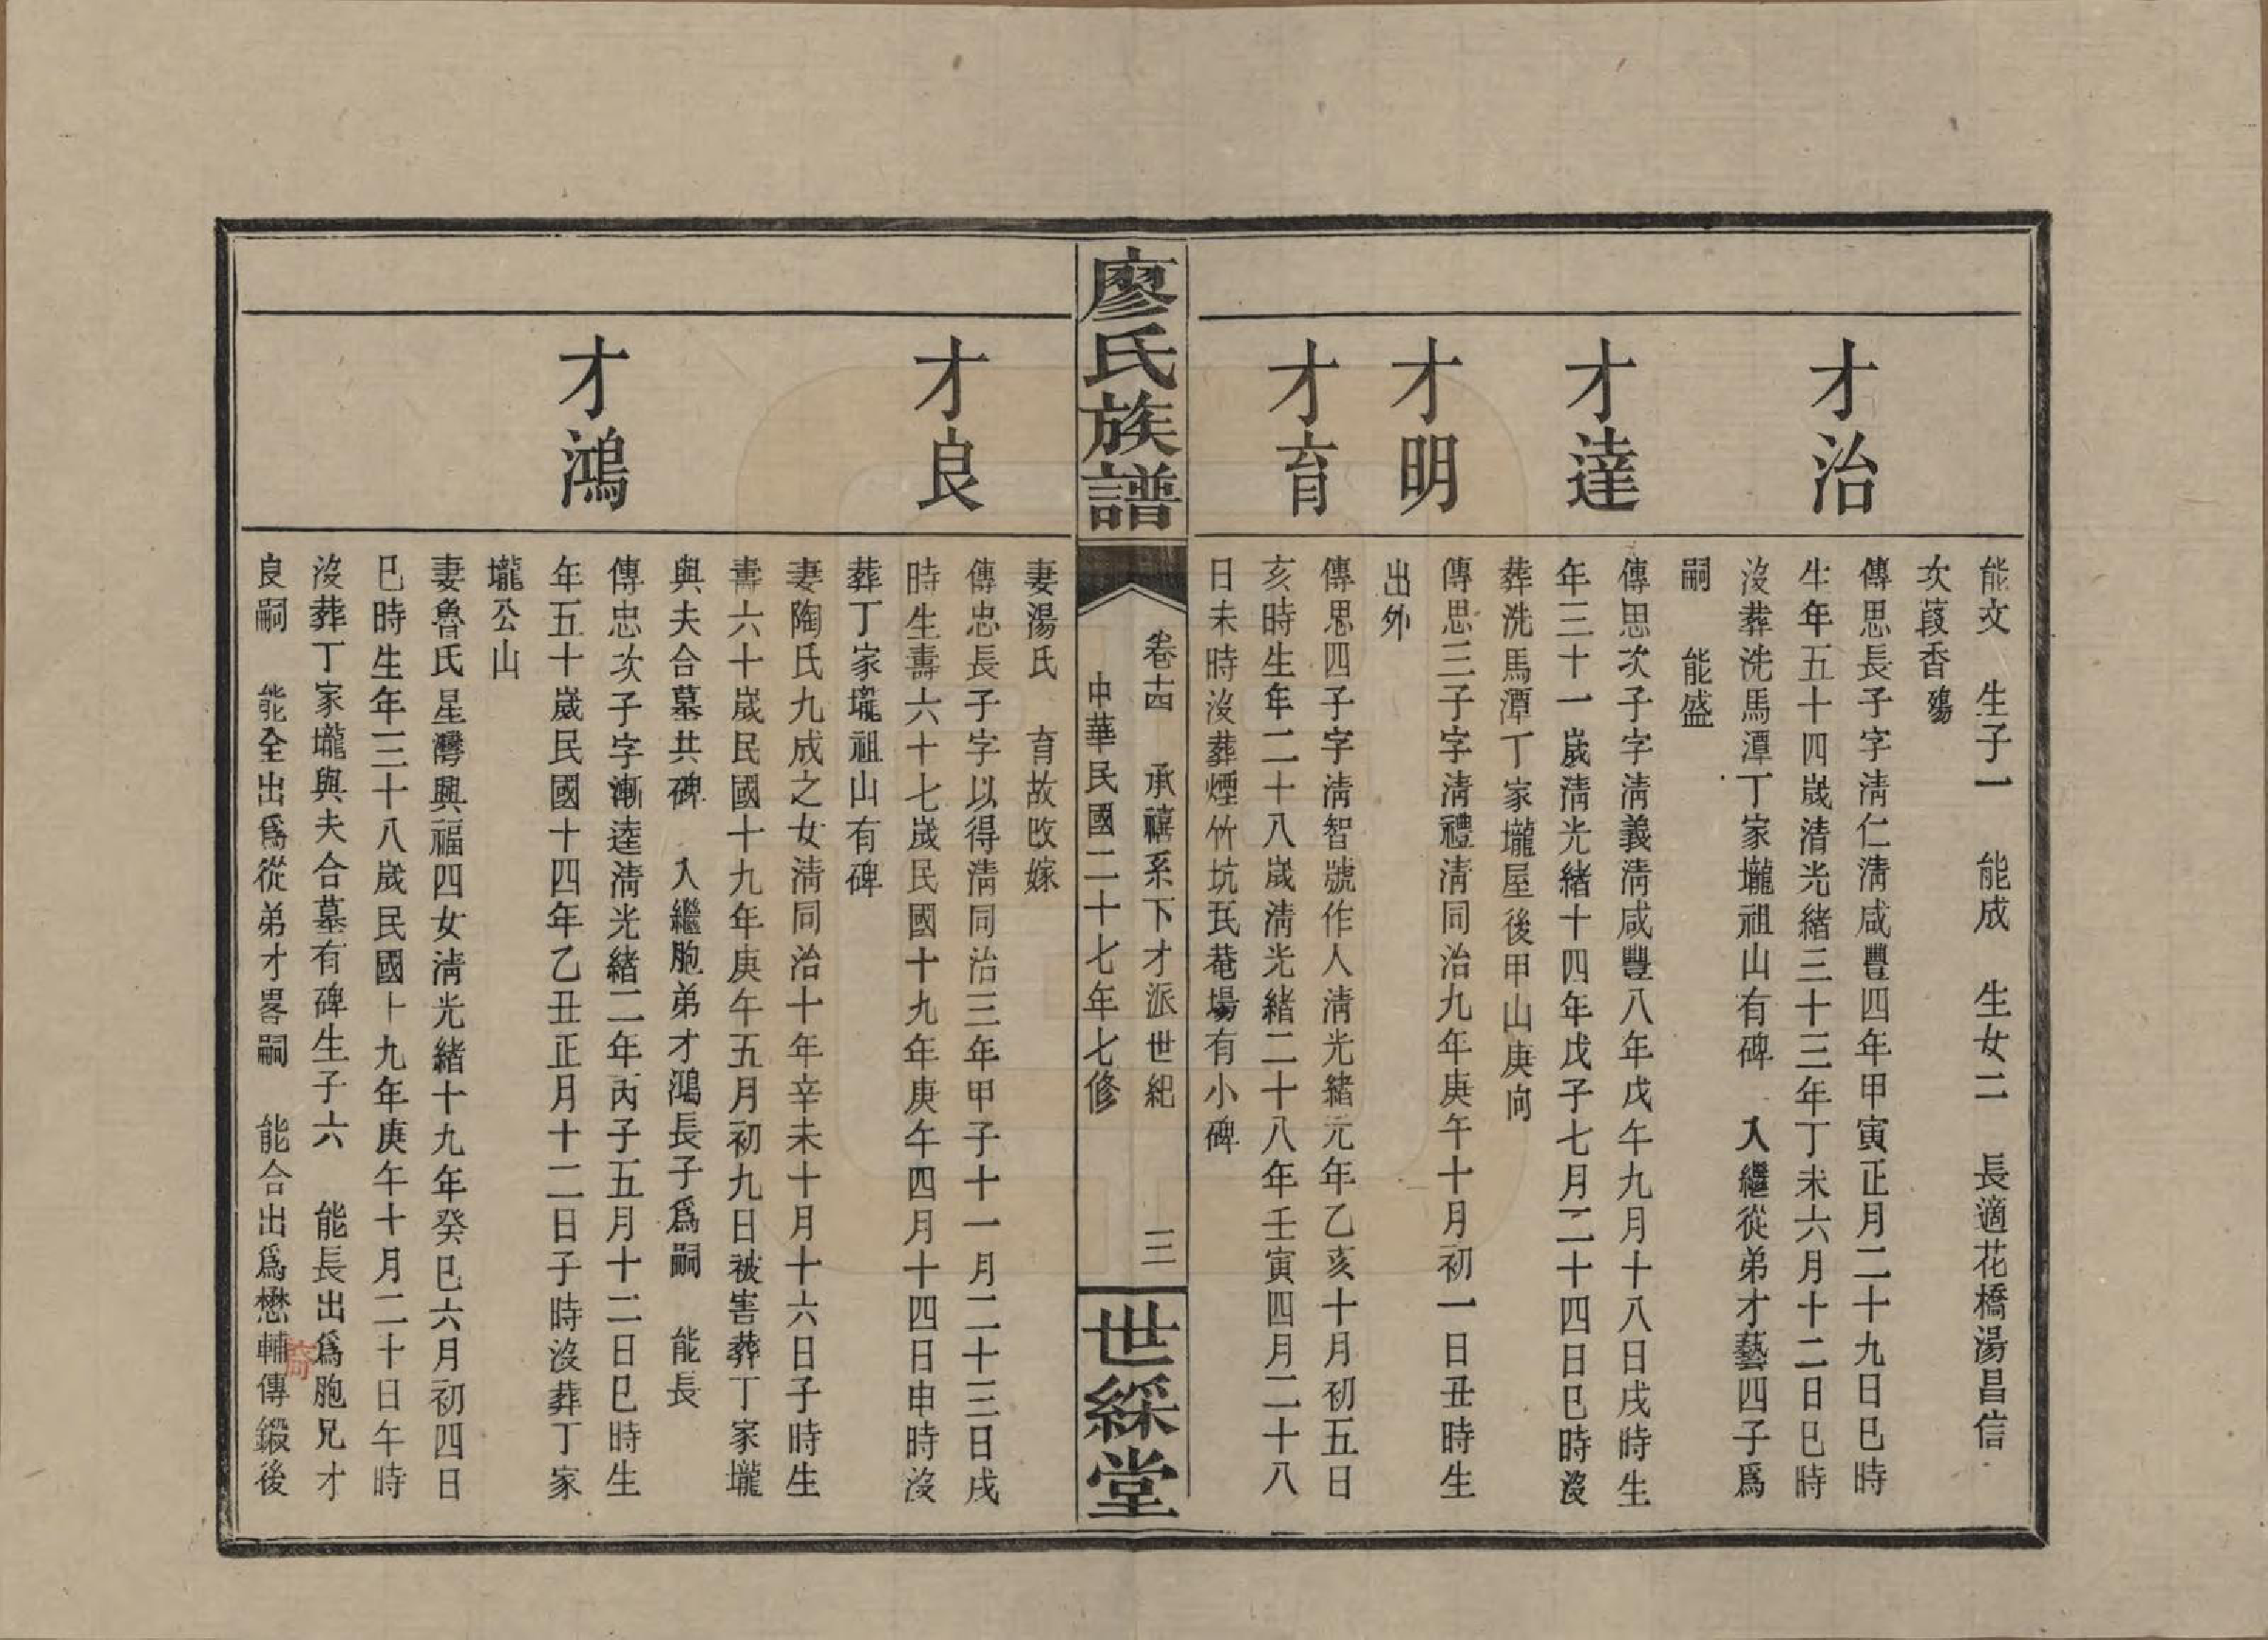 能文　生子一　能成　生女二　長適花橋湯昌信
次葭香殤
才治
傳思長子字淸仁淸咸豐四年甲寅正月二十九日巳時
生年五十四歲清光緒三十三年丁未六月十二日巳時
沒葬洗馬潭丁家壠祖山有碑　入繼從弟才藝四子爲
嗣　能盛
才達
傳思次子字淸義淸咸豐八年戊午九月十八日戌時生
年三十一歲淸光緒十四年戊子七月二十四日巳時沒
葬洗馬潭丁家壠屋後甲山庚向
才明
傳思三子字淸禮淸同治九年庚午十月初一日丑時生
出外
才育
傳思四子字淸智號作人淸光緒元年乙亥十月初五日
亥時生年二十八歲淸光緒二十八年壬寅四月二十八
日未時沒葬煙竹坑瓦菴場有小碑
廖氏族譜
卷十四　承禧系下才派世紀　三
中華民國二十七年七修
世綵堂
妻湯氏　育故改嫁
才良
傳忠長子字以得淸同治三年甲子十一月二十三日戌
時生壽六十七歲民國十九年庚午四月十四日申時沒
葬丁家壠祖山有碑
妻陶氏九成之女淸同治十年辛未十月十六日子時生
壽六十歲民國十九年庚午五月初九日被害葬丁家壠
與夫合墓共碑　入繼胞弟才鴻長子爲嗣　能長
才鴻
傳忠次子字漸逵淸光緒二年丙子五月十二日巳時生
年五十歲民國十四年乙丑正月十二日子時沒葬丁家
壠公山
妻魯氏星灣興福四女淸光緒十九年癸巳六月初四日
巳時生年三十八歲民國十九年庚午十月二十日午時
沒葬丁家壠與夫合墓有碑生子六　能長出爲胞兄才
良嗣　能全出爲從弟才畧嗣　能合出爲懋輔傳鍛後